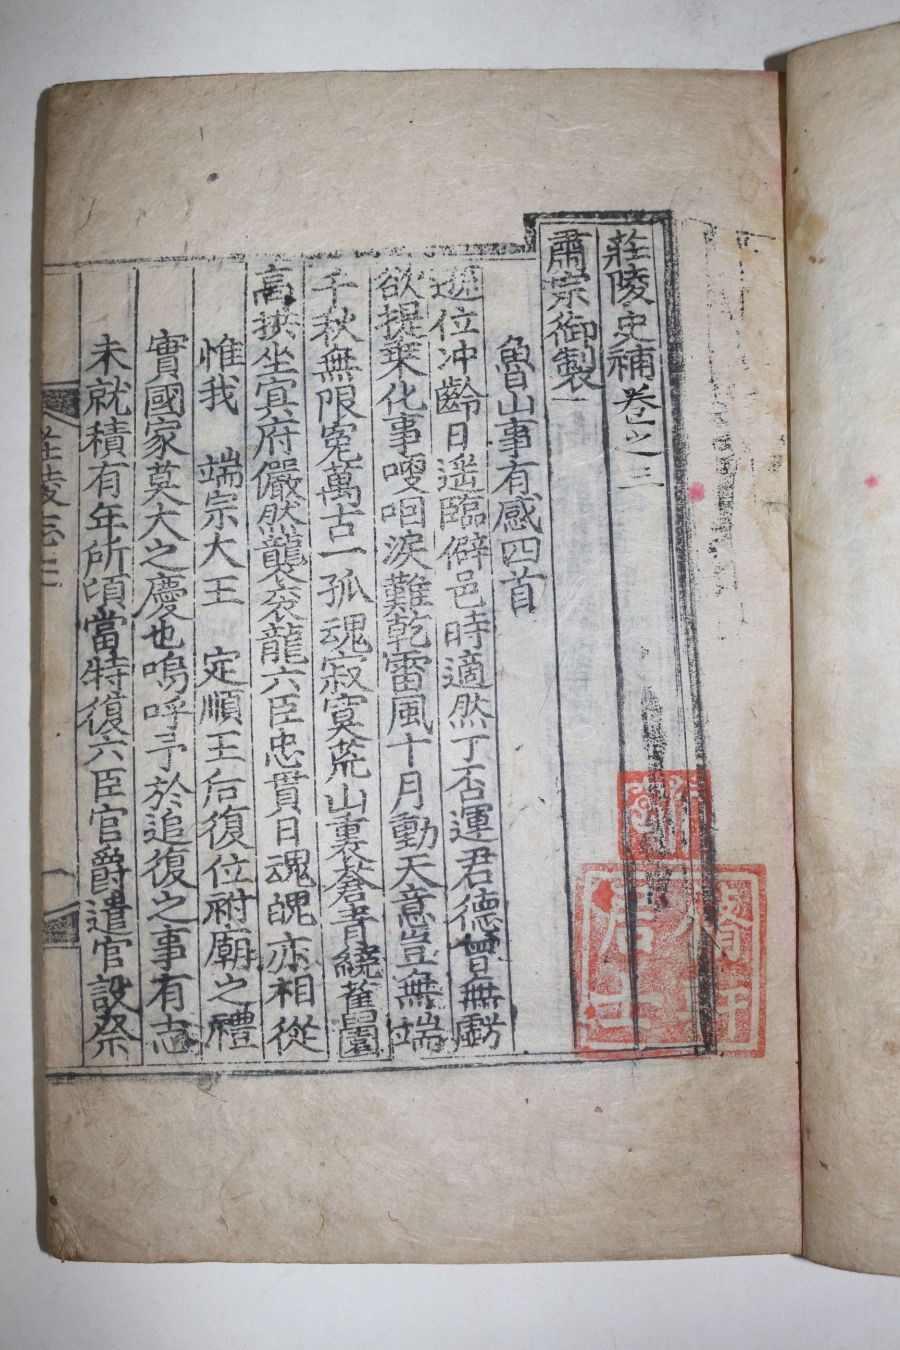 莊陵史補卷之三
肅宗御製
魯山事有感四首
遜位冲齡日遥臨僻邑時適然丁否運君德曽無虧
欲提乗化事嗄咽淚難乾雷風十月動天意豈無端
千秋無限寃萬古一孤魂寂寞荒山裏蒼青繞舊園
高拱坐冥府儼然襲衮龍六臣忠貫日魂魄亦相從
惟我 端宗大王 定順王后復位祔廟之禮
實國家莫大之慶也嗚呼予於追復之事有志
未就積有年所頃當特復六臣官爵遣官設祭
莊陵志三
居士